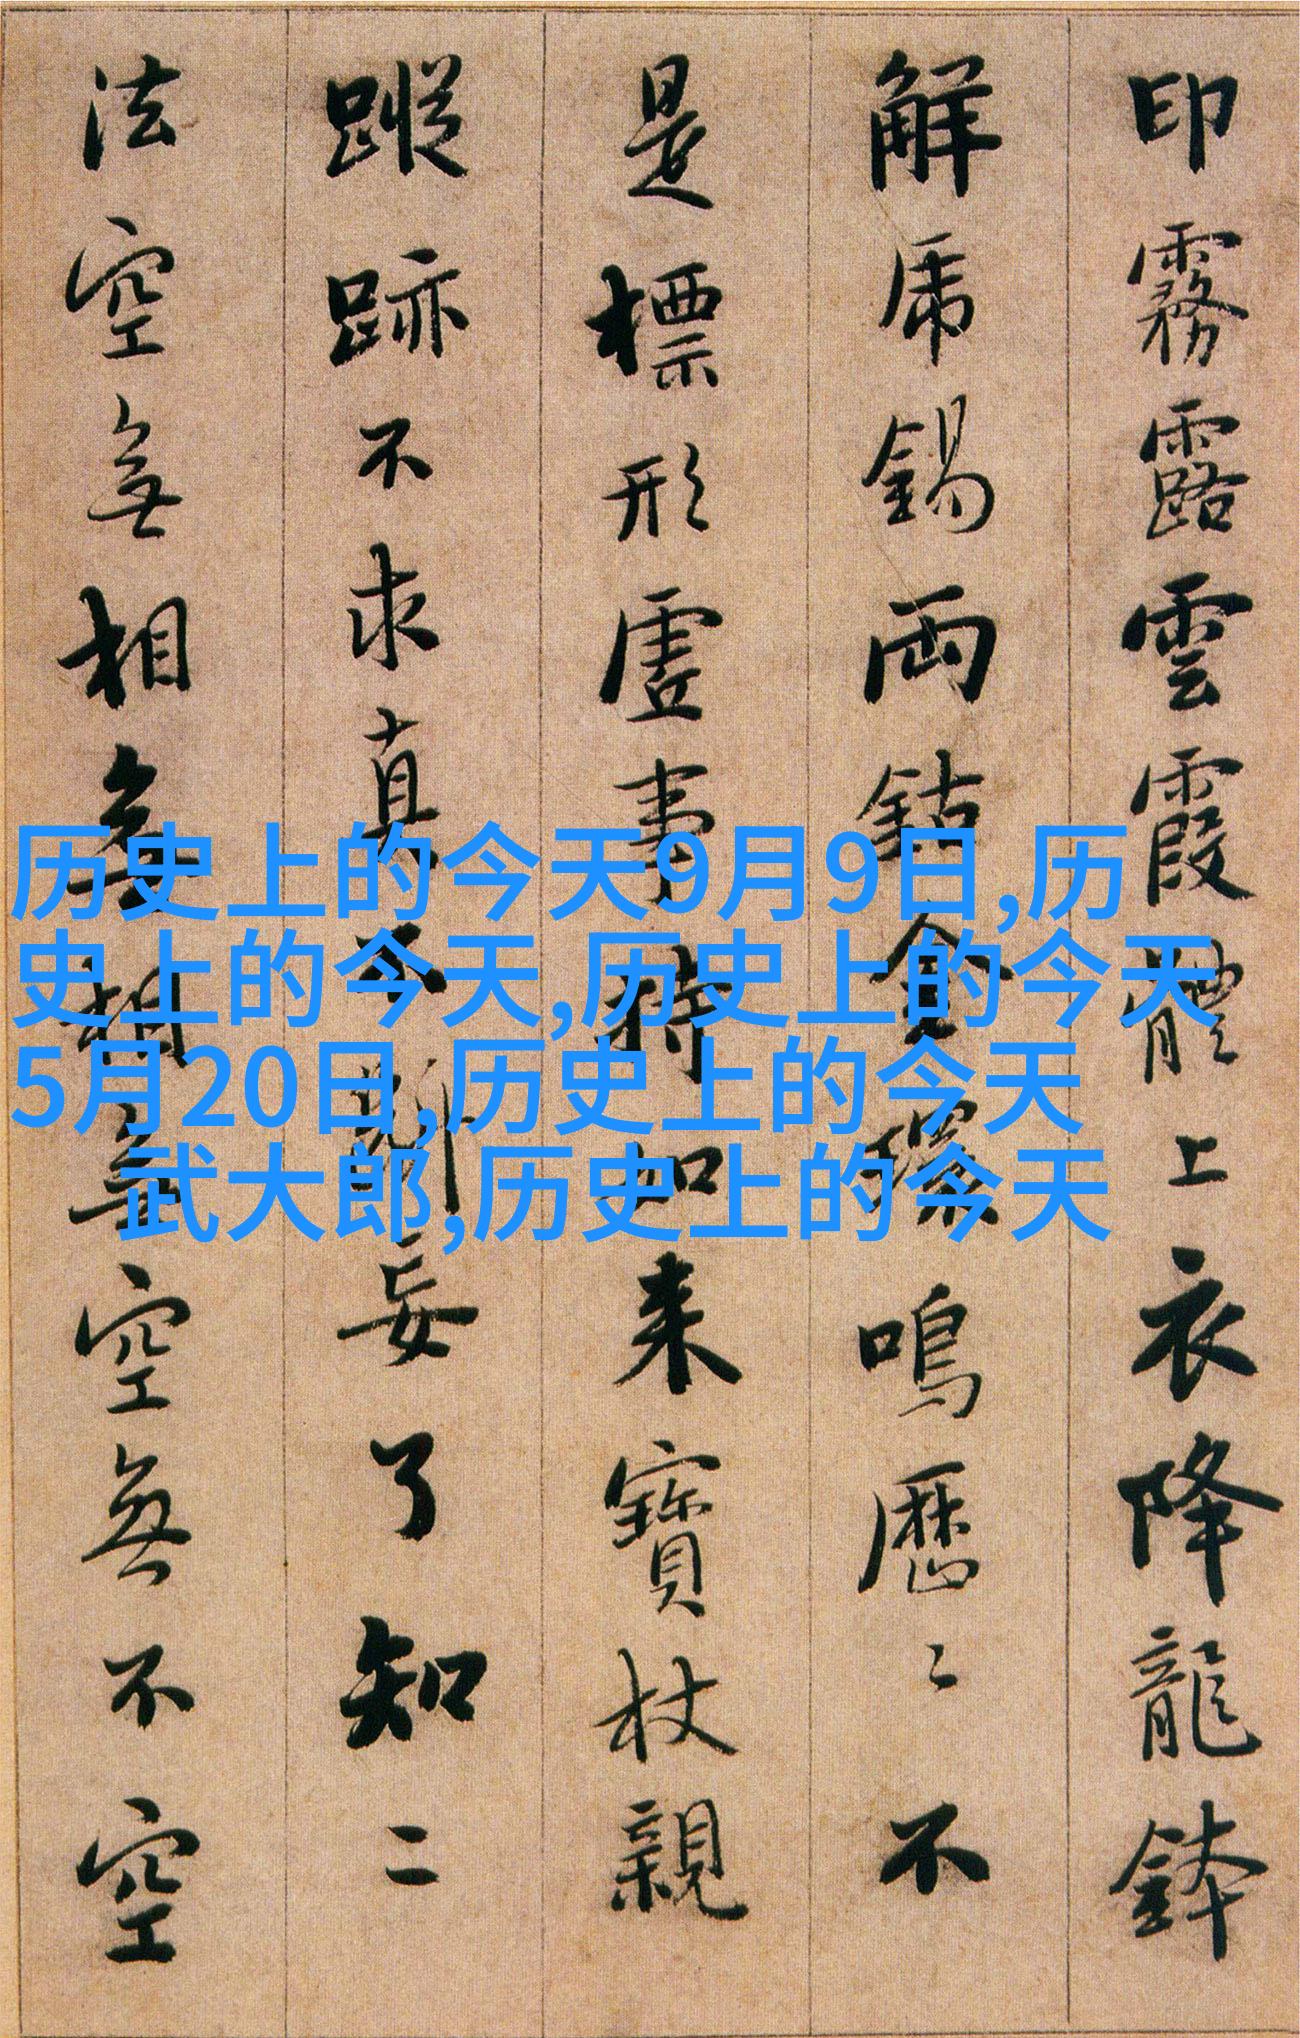 印霧露雲霞體上衣降龍鉢
解虎錫兩鈷金環鳴歷〻不
是標形虛事持如來寶杖親
蹤跡不求真不斷妄了知二
法空無相無相無空無不空
历史上的今天9月9日,历
史上的今天,历史上的今天
5月20日,历史上的今天
武大郎,历史上的今天